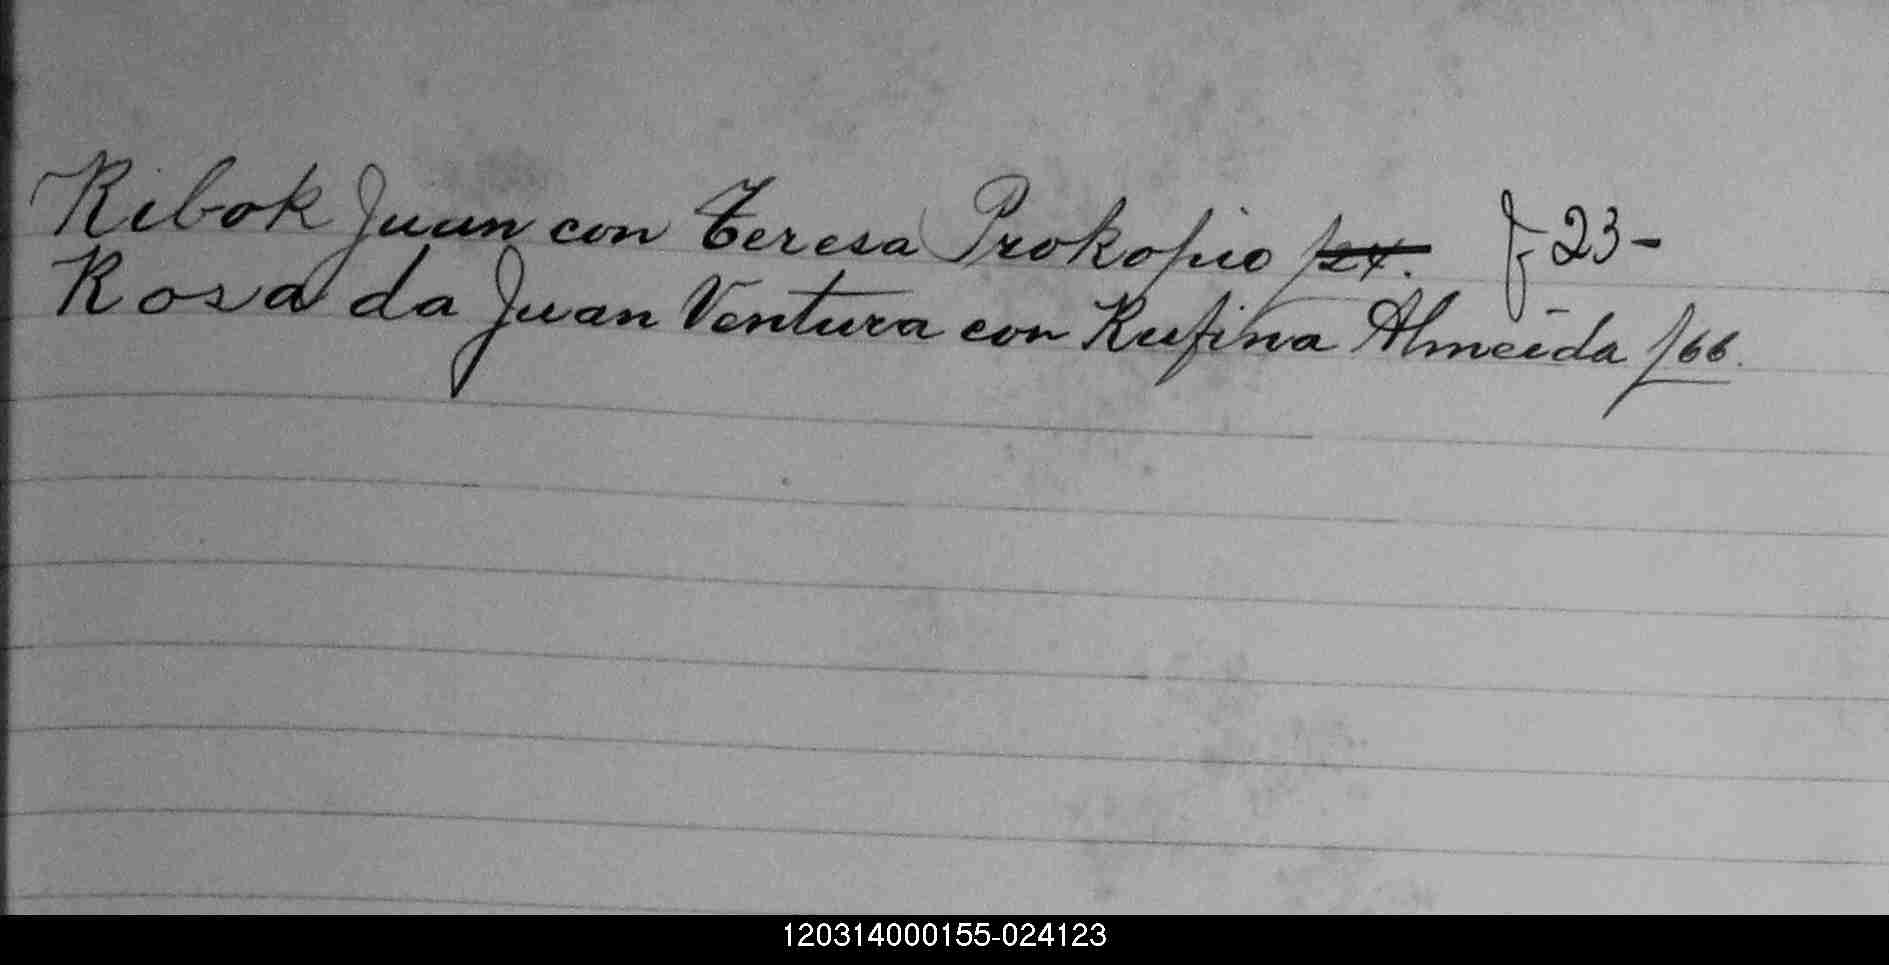 Ribok Juan con Teresa Prokopio f 23-
Rosa da Juan Ventura con Rufina Almeida f 66.
120314000155-024123